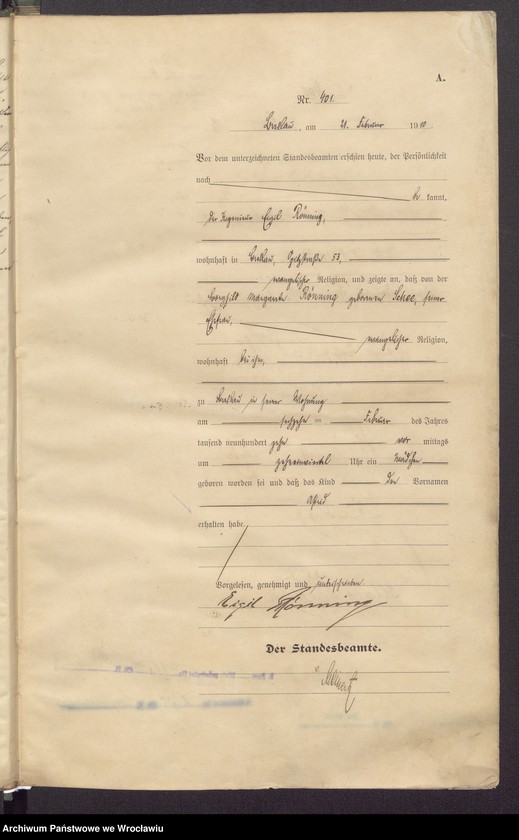 A.
Nr. 401.
Breslau, am 21. Februar 1910
Vor dem unterzeichneten Standesbeamten erschien heute, der Persönlichkeit
nach
be kannt,
der Ingenieur Eigil Rönning,
wohnhaft in Breslau, 53,
evangelischer Religion, und zeigte an, daß von der
Margarete Rönning geborenen Schee, seiner
Ehefrau,
evangelischer Religion,
wohnhaft bei ihm,
zu Breslau in seiner Wohnung
am sechzehn ten Februar des Jahres
tausend neunhundert zehn vor mittags
um Uhr ein Mädchen
geboren worden sei und daß das Kind den Vornamen
erhalten habe.
Vorgelesen, genehmigt und unterschrieben
Eigil Rönning
Der Standesbeamte.
Archiwum Państwowe we Wrocławiu